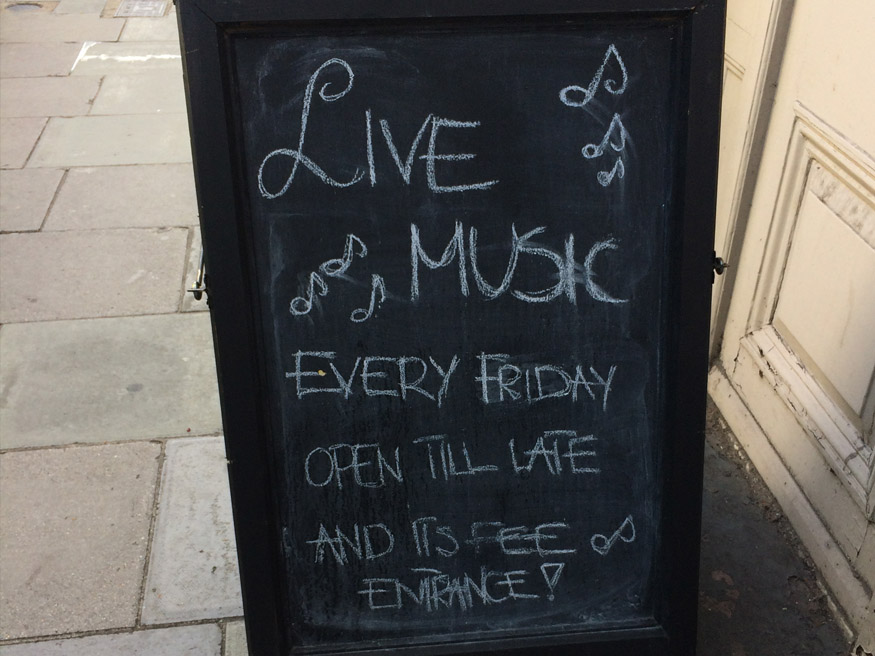 LIVE
MUSIC
EVERY FRIDAY
OPEN TILL LATE
AND ITS FEE
ENTRANCE!